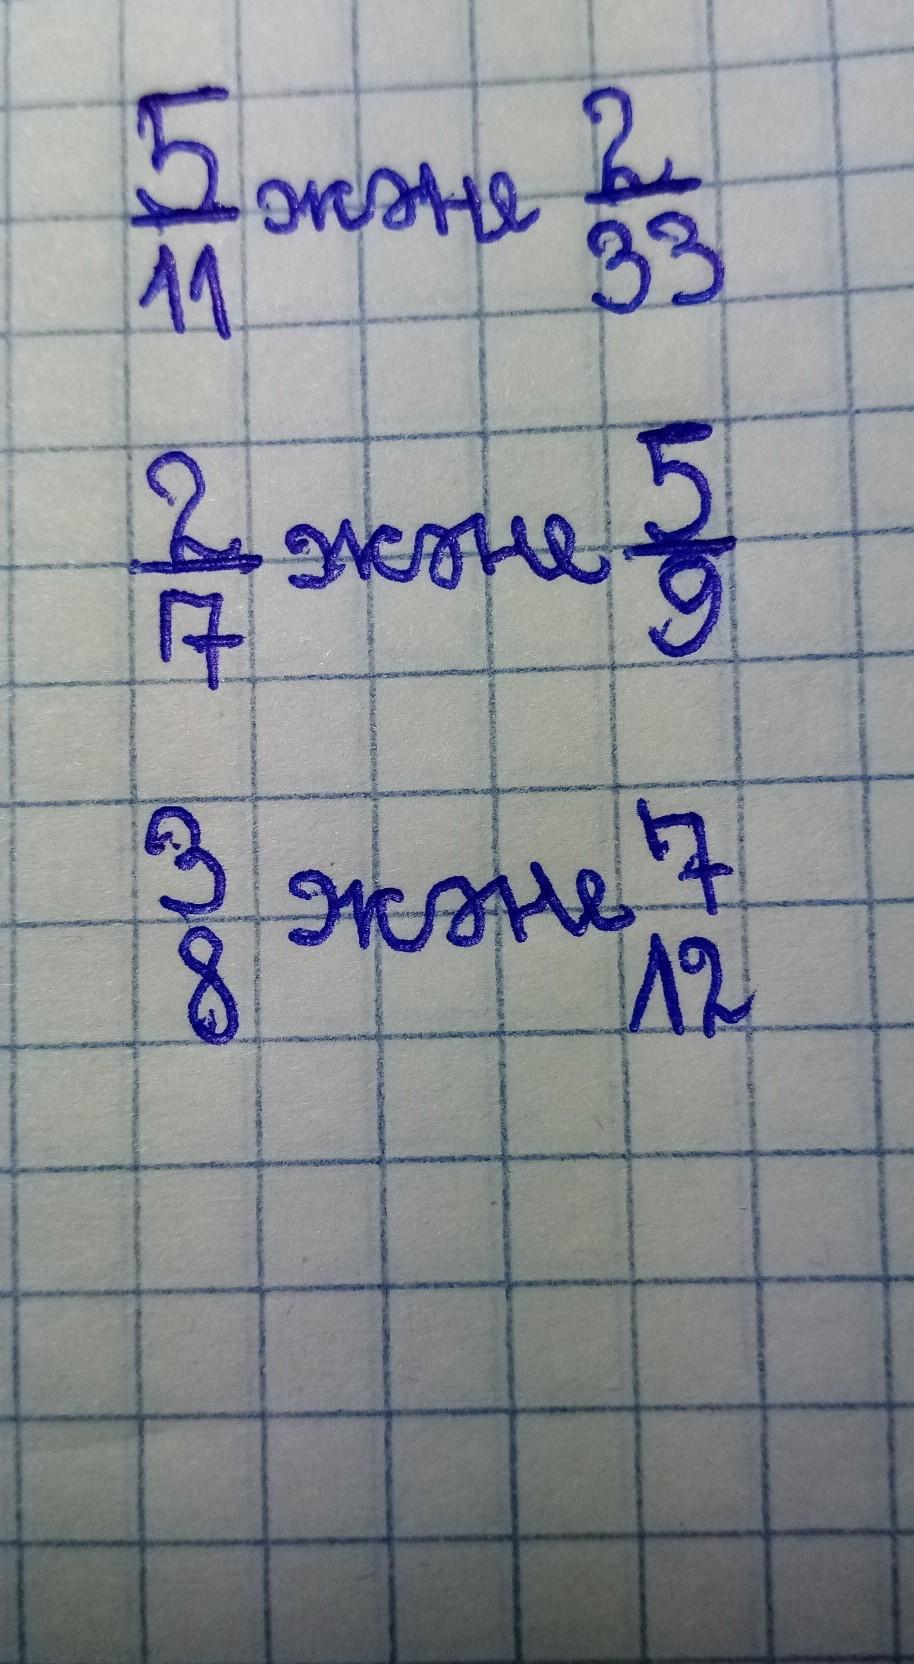 5/11 және 2/33
2/7 және 5/9
3/8 және 7/12